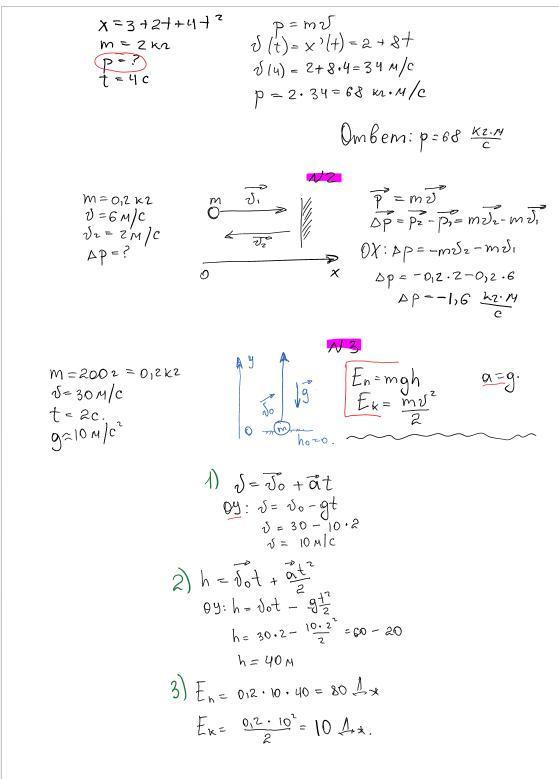 x = 3 + 2t + 4t²
m = 2 кг
p = ?
t = 4 с
p = mυ
υ(t) = x'(t) = 2 + 8t
υ(4) = 2 + 8·4 = 34 м/с
p = 2·34 = 68 кг·м/с
Ответ: p = 68 кг·м/с
№2
m = 0,2 кг
υ = 6 м/с
υ₂ = 2 м/с
Δp = ?
m υ₁
υ₂
O x
p = mυ
Δp = p₂ - p₁ = mυ₂ - mυ₁
OX: Δp = -mυ₂ - mυ₁
Δp = -0,2·2 - 0,2·6
Δp = -1,6 кг·м/с
№3
m = 200 г = 0,2 кг
υ = 30 м/с
t = 2 с.
g ≈ 10 м/с²
y
υ₀ g
O m h₀ = 0.
Eп = mgh
Eк = mυ²/2
a = g.
1) υ = υ₀ + at
ОУ: υ = υ₀ - gt
υ = 30 - 10·2
υ = 10 м/с
2) h = υ₀t + at²/2
ОУ: h = υ₀t - gt²/2
h = 30·2 - 10·2²/2 = 60 - 20
h = 40 м
3) Eп = 0,2·10·40 = 80 Дж
Eк = 0,2·10²/2 = 10 Дж.